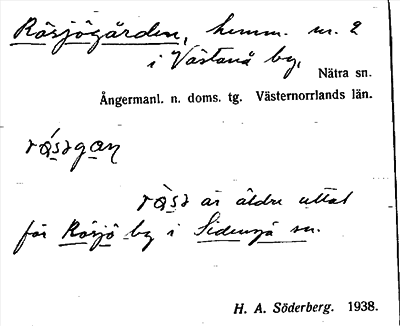 Råsjögården, hemm. nr. 2
i Västanå by,
Nätra sn.
Ångermanl. n. doms. tg. Västernorrlands län.
är äldre uttal
för Råsjö by i Sidensjö sn.
H. A. Söderberg. 1938.